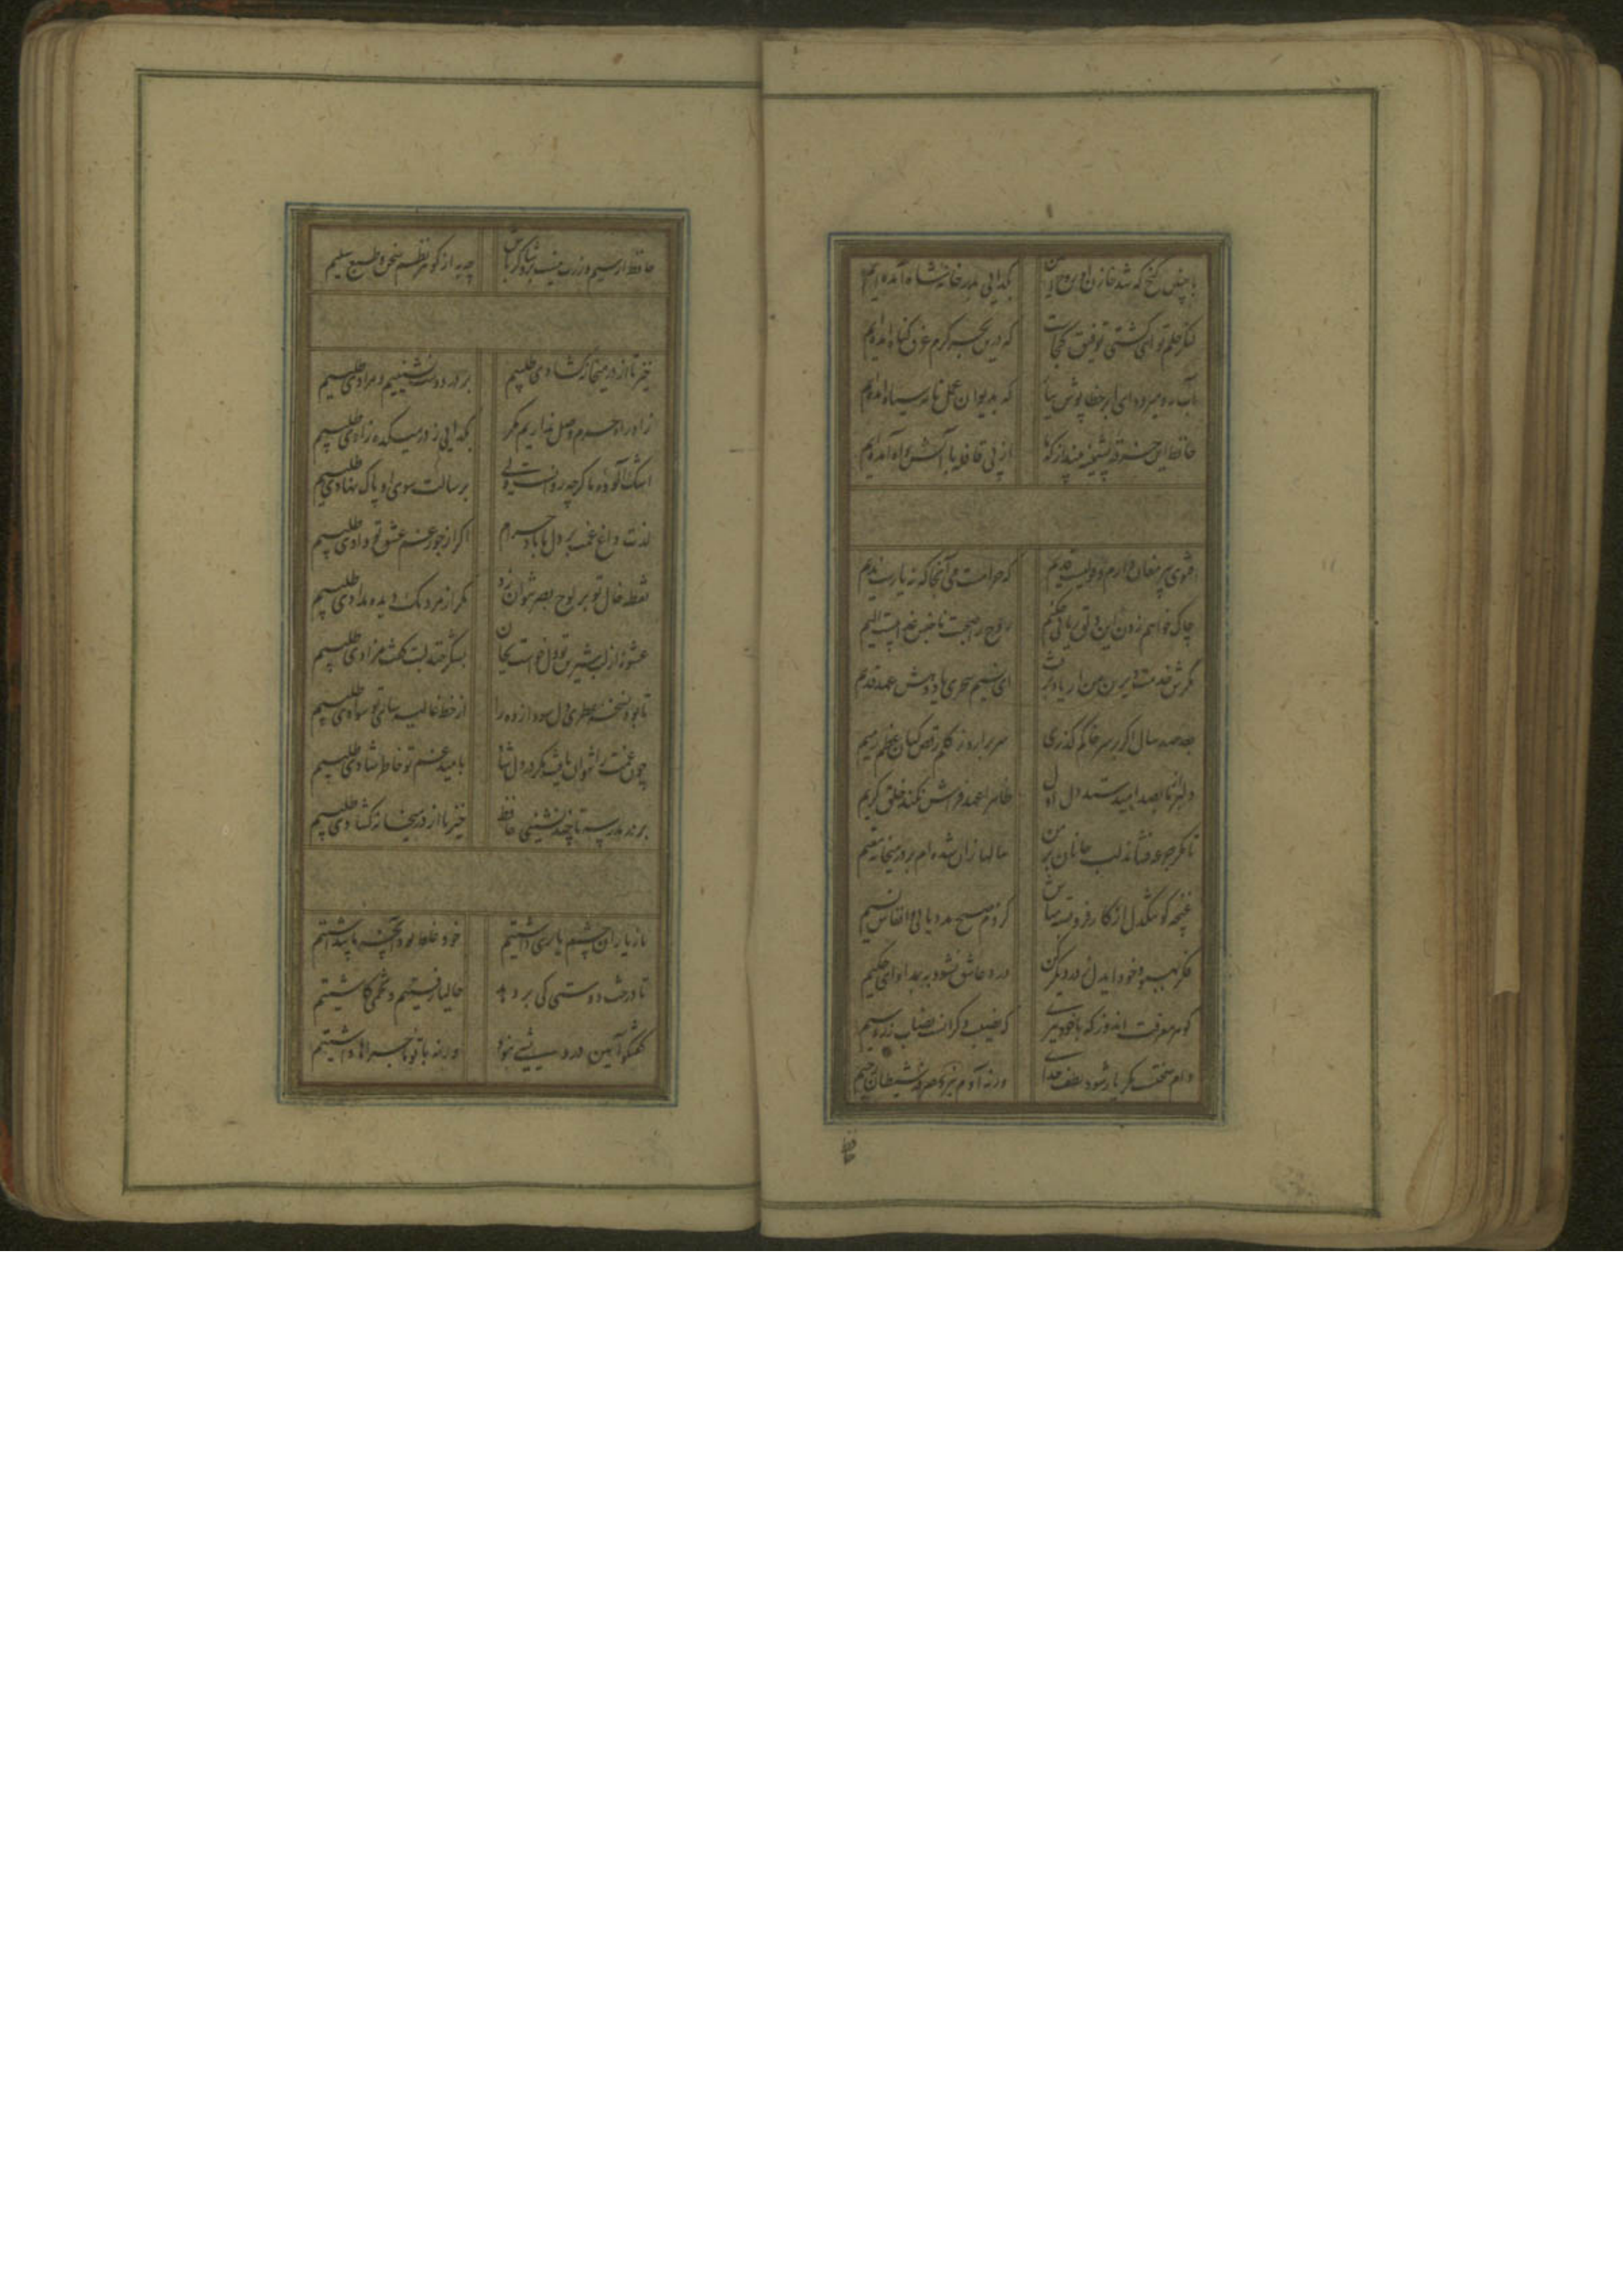 با چنین گنج که شد خازن او روح امین بگدایی بدر خانه شاه آمده‌ایم
لنگر حلم تو ای کشتی توفیق کجاست که درین بحر کرم غرق گناه آمده‌ایم
آب رو میرود ای ابر خطا پوش ببار که بدیوان عمل نامه سیاه آمده‌ایم
حافظ این خرقه پشمینه بینداز که ما از پی قافله با آتش و آه آمده‌ایم
فتوی پیر مغان دارم و قولیست قدیم که حرامست می آنجا که نه یارست ندیم
چاک خواهم زدن این دلق ریایی چکنم روح را صحبت ناجنس عذابیست الیم
مگرش خدمت دیرین من از یاد برفت ای نسیم سحری یاد دهش عهد قدیم
بعد صد سال اگر بر سر خاکم گذری سر برارد ز گلم رقص کنان عظم رمیم
دلبر از ما بصد امید ستد اول دل ظاهرا عهد فرامش نکند خلق کریم
تا مگر جرعه فشاند لب جانان بر من سالها زان شده‌ام بر در میخانه مقیم
غنچه گو تنگدل از کار فرو بسته مباش کز دم صبح مدد یابی و انفاس نسیم
فکر بهبود خود ایدل ز در دیگر کن درد عاشق نشود به بمداوای حکیم
گوهر معرفت اندوز که با خود ببری که نصیب دگرانست نصاب زر و سیم
دام سختست مگر یار شود لطف خدای ورنه آدم نبرد صرفه ز شیطان رجیم
حافظ
حافظ ار سیم و زرت نیست برو شاکر باش چه به از گوهر نظم سخن و طبع سلیم
خیز تا از در میخانه گشادی طلبیم بر در دوست نشینیم و مرادی طلبیم
زاد راه حرم وصل نداریم مگر بگدایی ز در میکده زادی طلبیم
اشک آلوده ما گرچه روانست ولی برسالت سوی او پاک نهادی طلبیم
لذت داغ غمت بر دل ما باد حرام اگر از جور غم عشق تو دادی طلبیم
نقطه خال تو بر لوح بصر نتوان زد مگر از مردمک دیده مدادی طلبیم
عشوه از لب شیرین تو دل خواست بجان بشکر خنده لبت گفت مزادی طلبیم
تا بود نسخه عطری دل سودا زده را از خط غالیه سای تو سوادی طلبیم
چون غمت را نتوان یافت مگر در دل شاد بامید غم تو خاطر شادی طلبیم
بر در مدرسه تا چند نشینی حافظ خیز تا از در میخانه گشادی طلبیم
ما ز یاران چشم یاری داشتیم خود غلط بود آنچه ما پنداشتیم
تا درخت دوستی کی بر دهد حالیا رفتیم و تخمی کاشتیم
گفتگو آیین درویشی نبود ورنه با تو ماجراها داشتیم